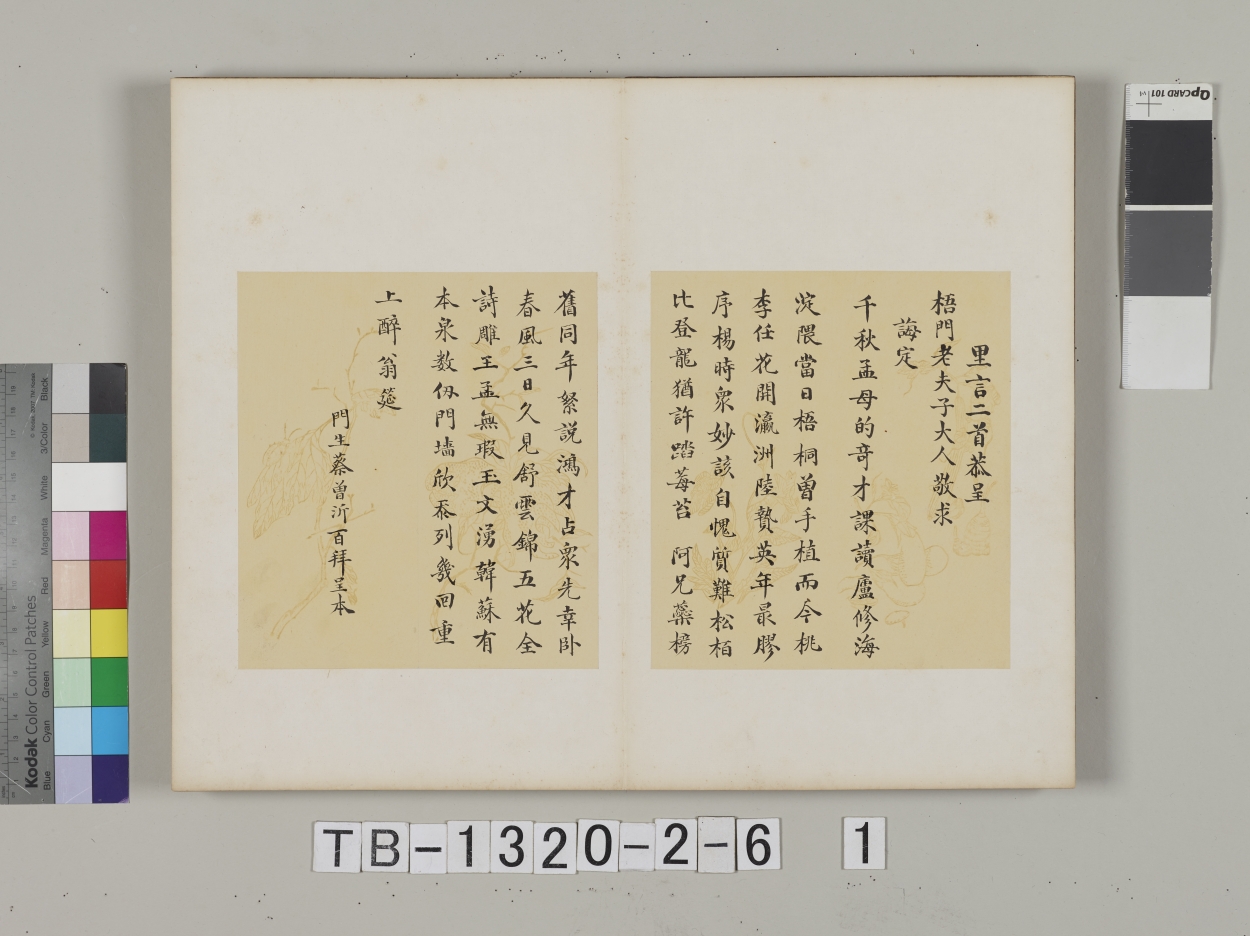 里言二首恭呈
梧門老夫子大人敬求
誨定
千秋孟母的奇才課讀廬修海
淀隈當日梧桐曾手植而今桃
李任花開瀛洲陸贄英年最膠
序楊時衆妙該自愧質難松栢
比登龍猶許踏莓苔 阿兄蘂榜
舊同年祭說鴻才占衆先幸卧
春風三日久見舒雲錦五花全
詩雕王孟無瑕玉文湧韓蘇有
本泉数仞門墻欣忝列幾回重
上醉翁筵
門生蔡曾沂百拜呈本
Kodak Color Control Patches
© Kodak, 2007, TM: Kodak
Blue
Cyan
Green
Yellow
Red
Magenta
White
3/Color
Black
QPCARD 101 v1
TB-1320-2-6 1